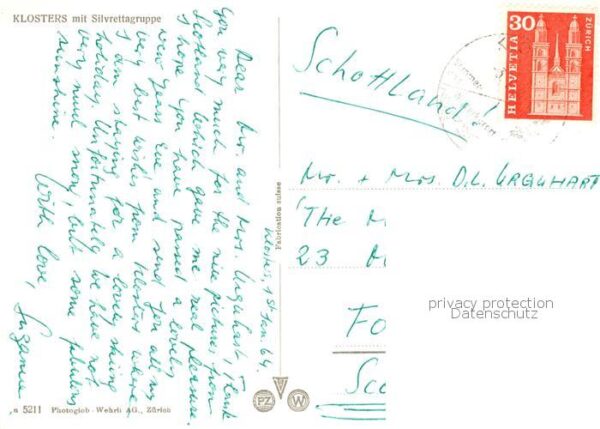 KLOSTERS mit Silvrettagruppe
Klosters, 1st Jan. 64.
Dear Mr. and Mrs. Urquhart, Thank
you very much for the nice pictures from
Scotland which gave me real pleasure.
I hope you have passed a lovely
New Years Eve and send you all my
very best wishes from Klosters where
I am staying for a lovely skiing
holiday. Unfortunately we have not
very much snow, but some fabulous
sunshine.
With love,
Suzanne
Fabrication suisse
5211 Photoglob-Wehrli AG., Zürich
PZ W
HELVETIA
30
ZÜRICH
Schottland!
Mr. + Mrs. D.L. URQUHART
'The
23
Fo
Sco
privacy protection
Datenschutz